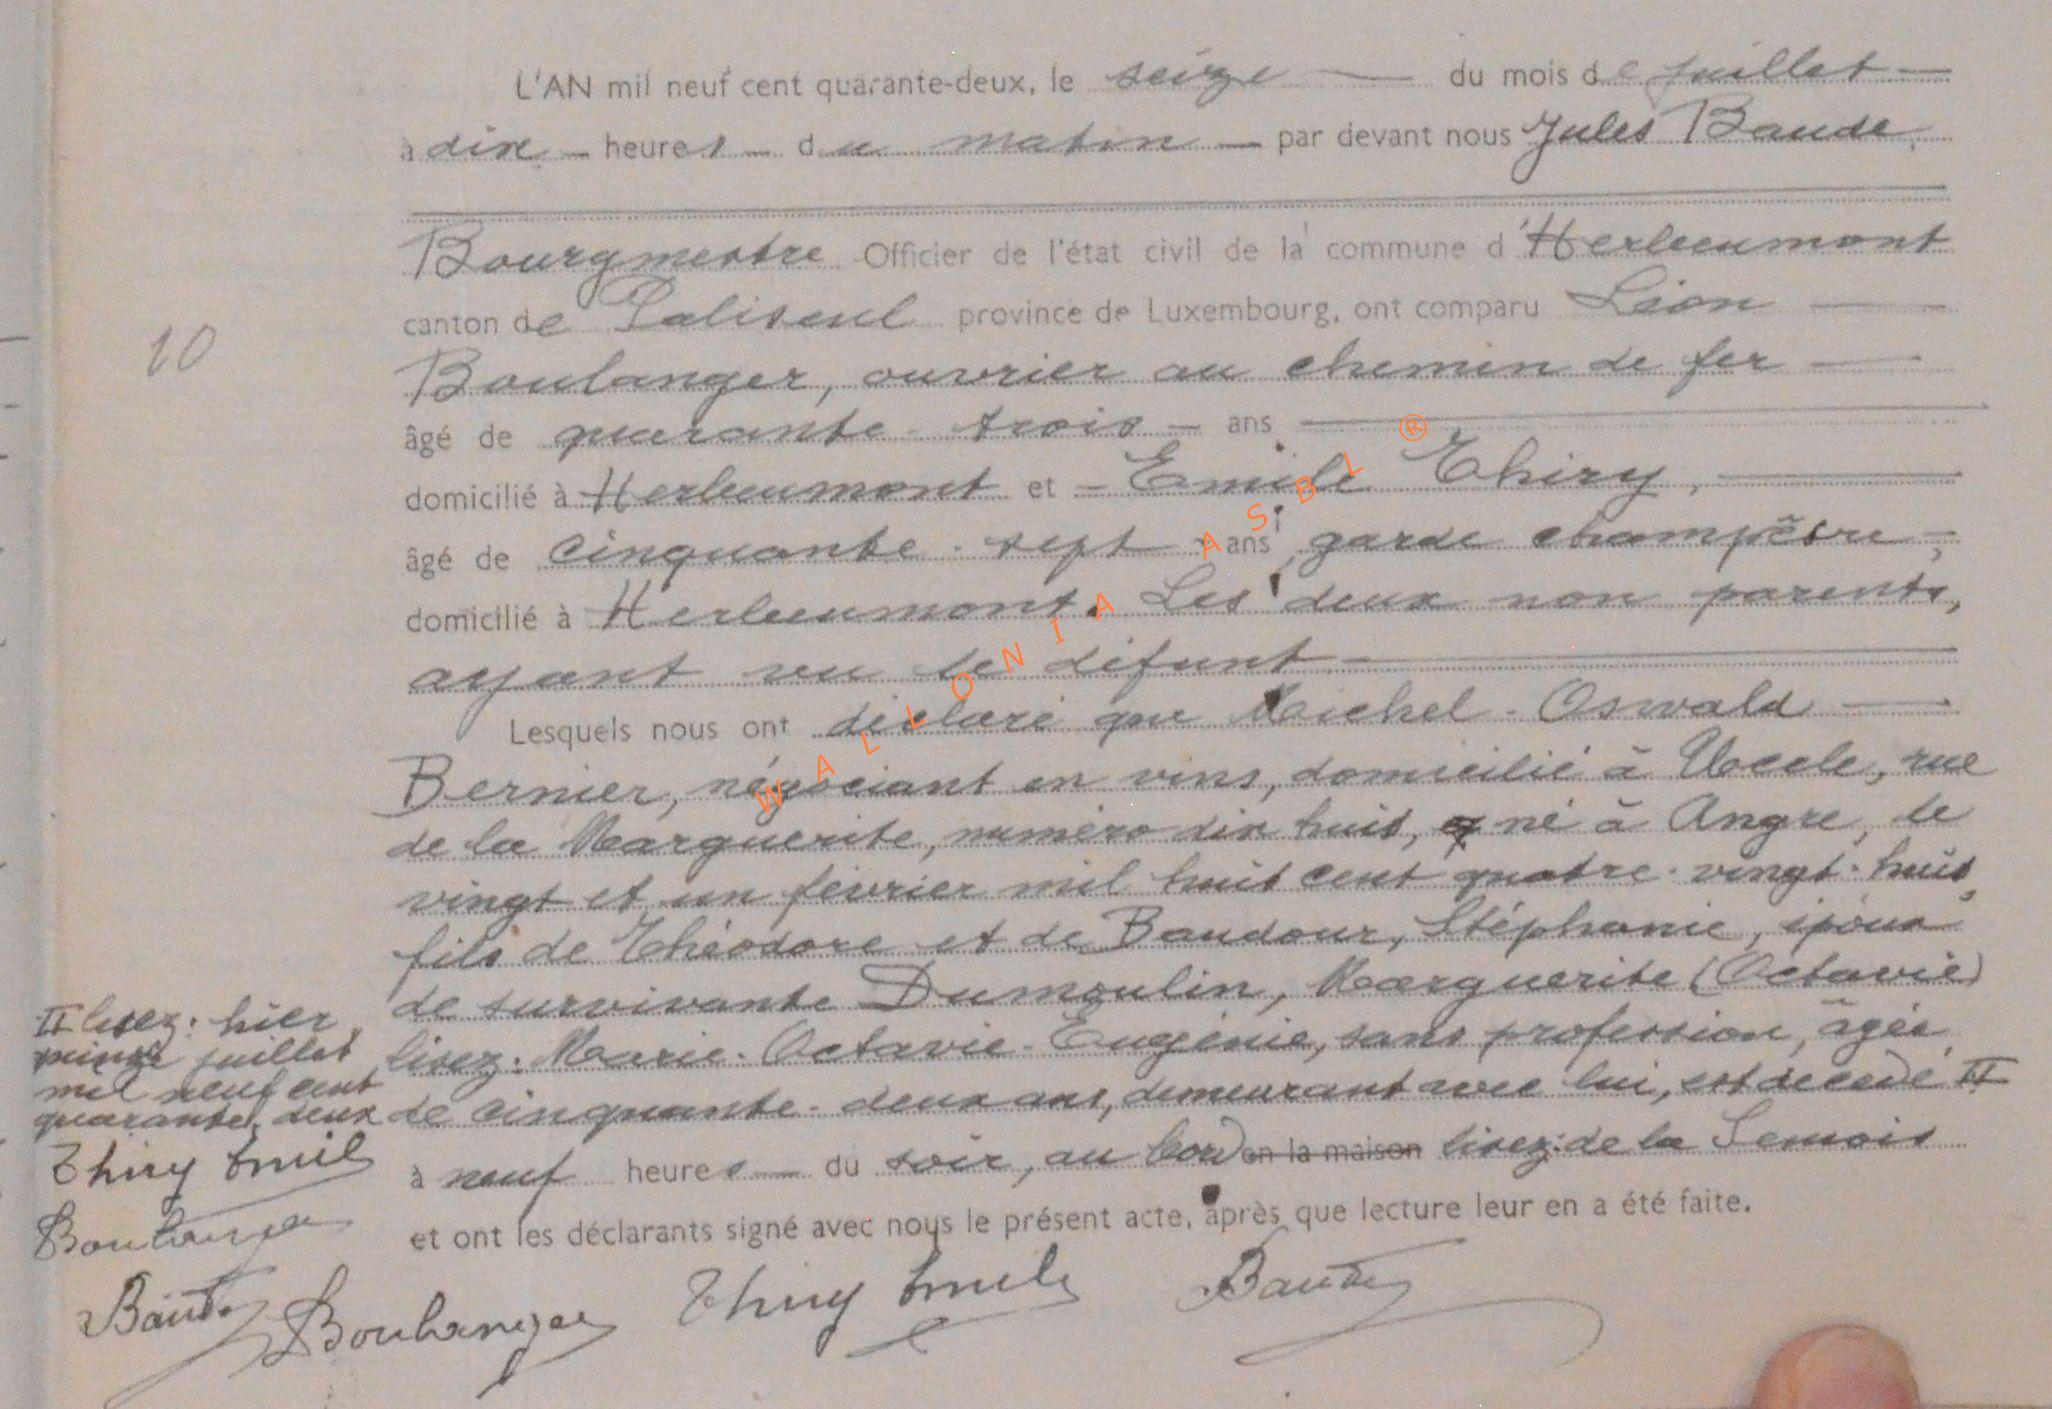 L'AN mil neuf cent quarante-deux, le seize — du mois de juillet —
à dix — heures — du matin — par devant nous Jules Baude,
Bourgmestre Officier de l'état civil de la commune d'Herbeumont
canton de Paliseul province de Luxembourg, ont comparu Léon —
Boulanger, ouvrier au chemin de fer —
âgé de quarante-trois — ans —
domicilié à Herbeumont et — Emile Thiry, —
âgé de cinquante-sept - ans, garde champêtre, -
domicilié à Herbeumont. Les deux non parents,
ayant vu le défunt —
Lesquels nous ont déclaré que Michel-Oswald —
Bernier, négociant en vins, domicilié à Uccle, rue
de la Marguerite, numéro dix huit, né à Angre, le
vingt et un février mil huit cent quatre-vingt-huit,
fils de Théodore et de Baudour, Stéphanie, époux
de survivante Dumoulin, Marguerite (Octavie)
lisez: Marie-Octavie-Eugénie, sans profession, âgée
de cinquante-deux ans, demeurant avec lui, est décédé II
à neuf heures — du soir, au bord en la maison lisez: de la Semois
et ont les déclarants signé avec nous le présent acte, après que lecture leur en a été faite.
Boulanger Thiry Emile Baude
10
II lisez: hier
quinze juillet
mil neuf cent
quarante-deux
Thiry Emile
Boulanger
Baude
WALLONIA ASBL ®